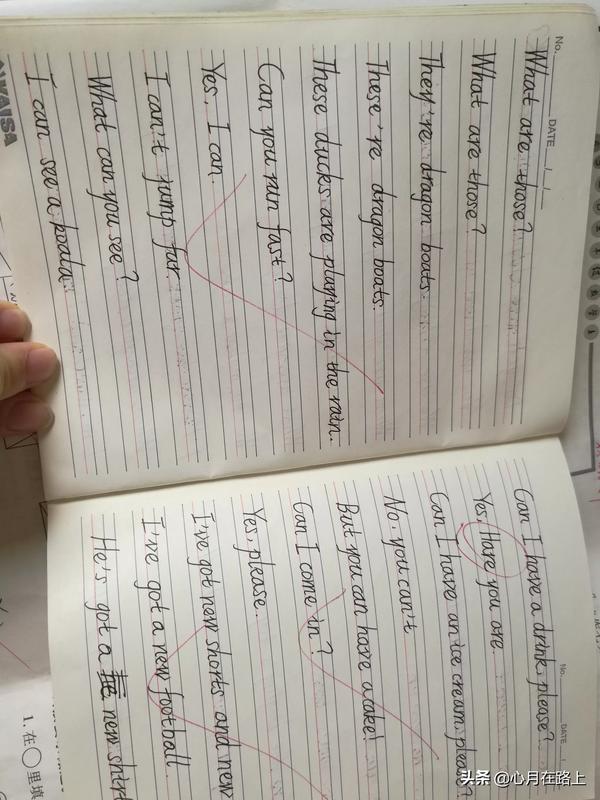 No. DATE
What are those?
What are those?
They're dragon boats.
These're dragon boats.
These ducks are playing in the rain.
Can you run fast?
Yes, I can.
I can't jump far.
What can you see?
I can see a koala.
No. DATE
Can I have a drink, please?
Yes, Hare you are.
Can I have an ice cream, please?
No. you can't
But you can have a cake!
Can I come in?
Yes, please.
I've got new shorts and new
I've got a new football.
He's got a new shirt
1. 在○里填
头条 @心月在路上